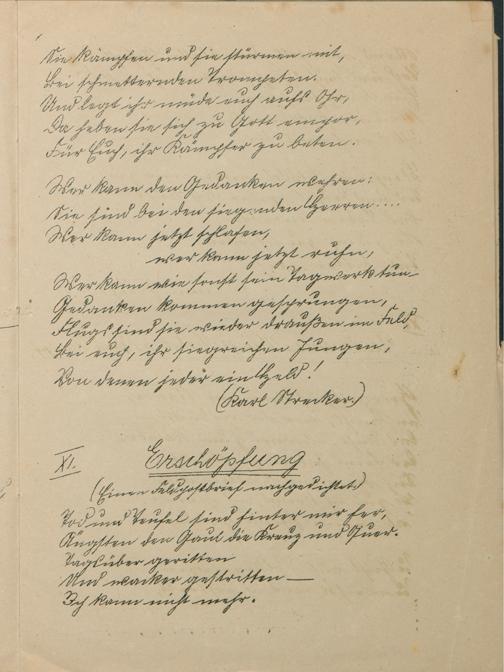 Sie kämpfen und sie stürmen mit,
Bei schmetternden Trompeten.
Und legt ihr müde euch aufs Ohr,
Da heben sie sich zu Gott empor,
Für Euch, ihr Kämpfer zu beten.
Wer kann den Gedanken wehren:
Sie sind bei den siegenden Heeren....
Wer kann jetzt schlafen,
wer kann jetzt ruhn,
Wer kann wie sonst sein Tagwerk tun
Gedanken kommen gesprungen,
Flugs sind sie wieder draußen im Feld
Bei euch, ihr siegreichen Jungen,
Von denen jeder ein Held!
(Karl Strecker.)
XI. Erschöpfung
(Einem Feldpostbrief nachgedichtet.)
Tod und Teufel sind hinter mir her,
Ängsten den Gaul die Kreuz und Quer.
Tagsüber geritten
Und wacker gestritten —
Ich kann nicht mehr.